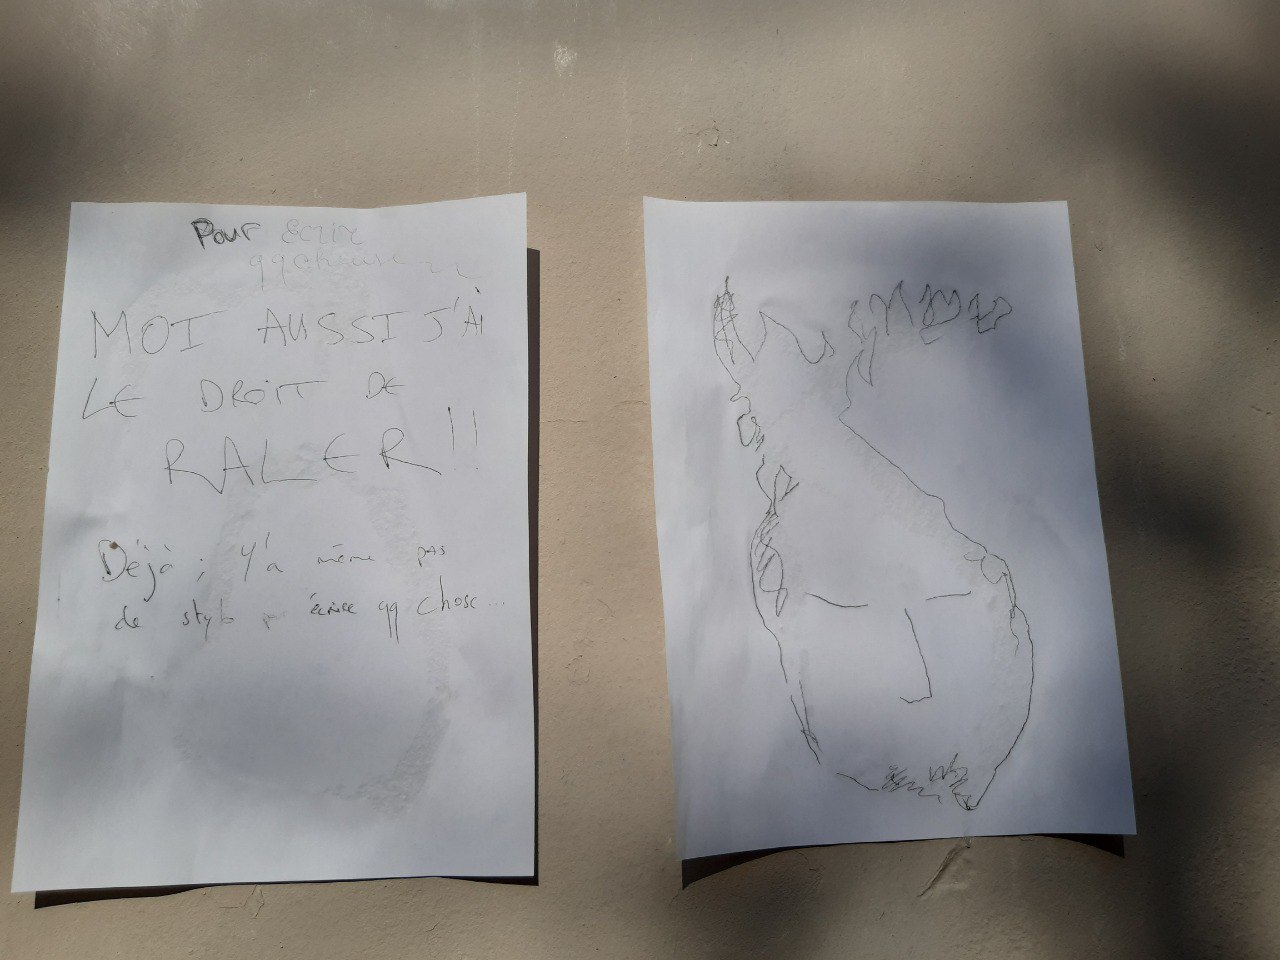 Pour écrire
qqchose...
MOI AUSSI J'AI
LE DROIT DE
RALER !!
Déjà ; Y'a même pas
de stylo pr écrire qq chose...